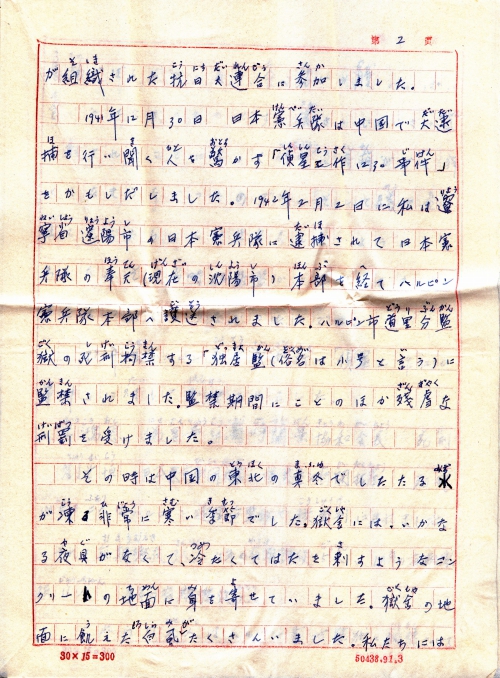 第 2 頁
が組織された抗日大連合に参加しました。
1941年12月30日 日本憲兵隊は中国で大逮
捕を行い聞く人を驚かす「偵星工作1230事件」
をかもしだしました。1942年2月2日に私は遼
寧省遼陽市の日本憲兵隊に逮捕されて日本憲
兵隊の奉天(現在の沈陽市)本部を経てハルピン
憲兵隊本部へ護送されました。ハルピン市道里分監
獄の死刑拘禁する「独房監(俗名は小号と言う)に
監禁されました。監禁期間にことのほか残虐な
刑罰を受けました。
その時は中国の東北の真冬でしたたる水
が凍る非常に寒い季節でした。獄舎には、いかな
る夜具がなくて、冷たくてはだを刺すようなコン
クリートの地面に身を寄せていました。獄舎の地
面に飢えた白虱たくさんいました。私たちには
30×15=300
50438.91.3